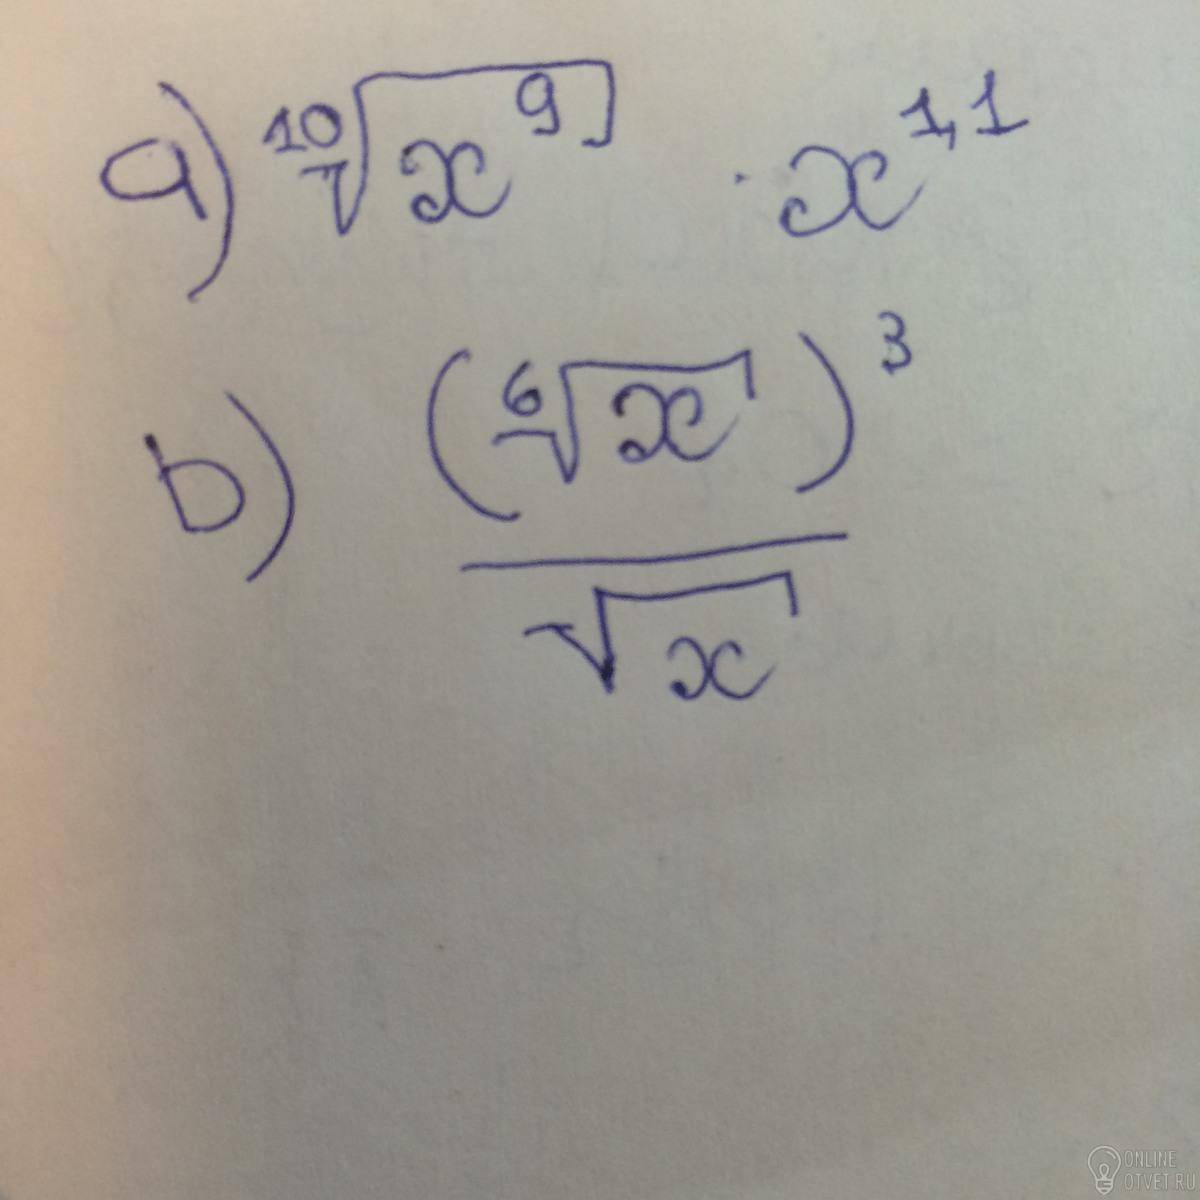 a) ¹⁰√x⁹ · x^1,1
b) (⁶√x)³
√x
ONLINE
OTVET.RU